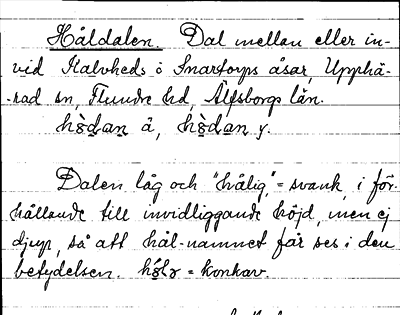 Håldalen. Dal mellan eller in-
vid Kalvheds o Snartorps åsar, Upphä-
-rad sn, Flundre hd, Älfsborgs län.
hò̤dan ä, hò̤dan y.
Dalen låg och "hålig" = svank, i för-
hållande till invidliggande höjd, men ej
djup, så att hål-namnet får ses i den
betydelsen. = konkav.